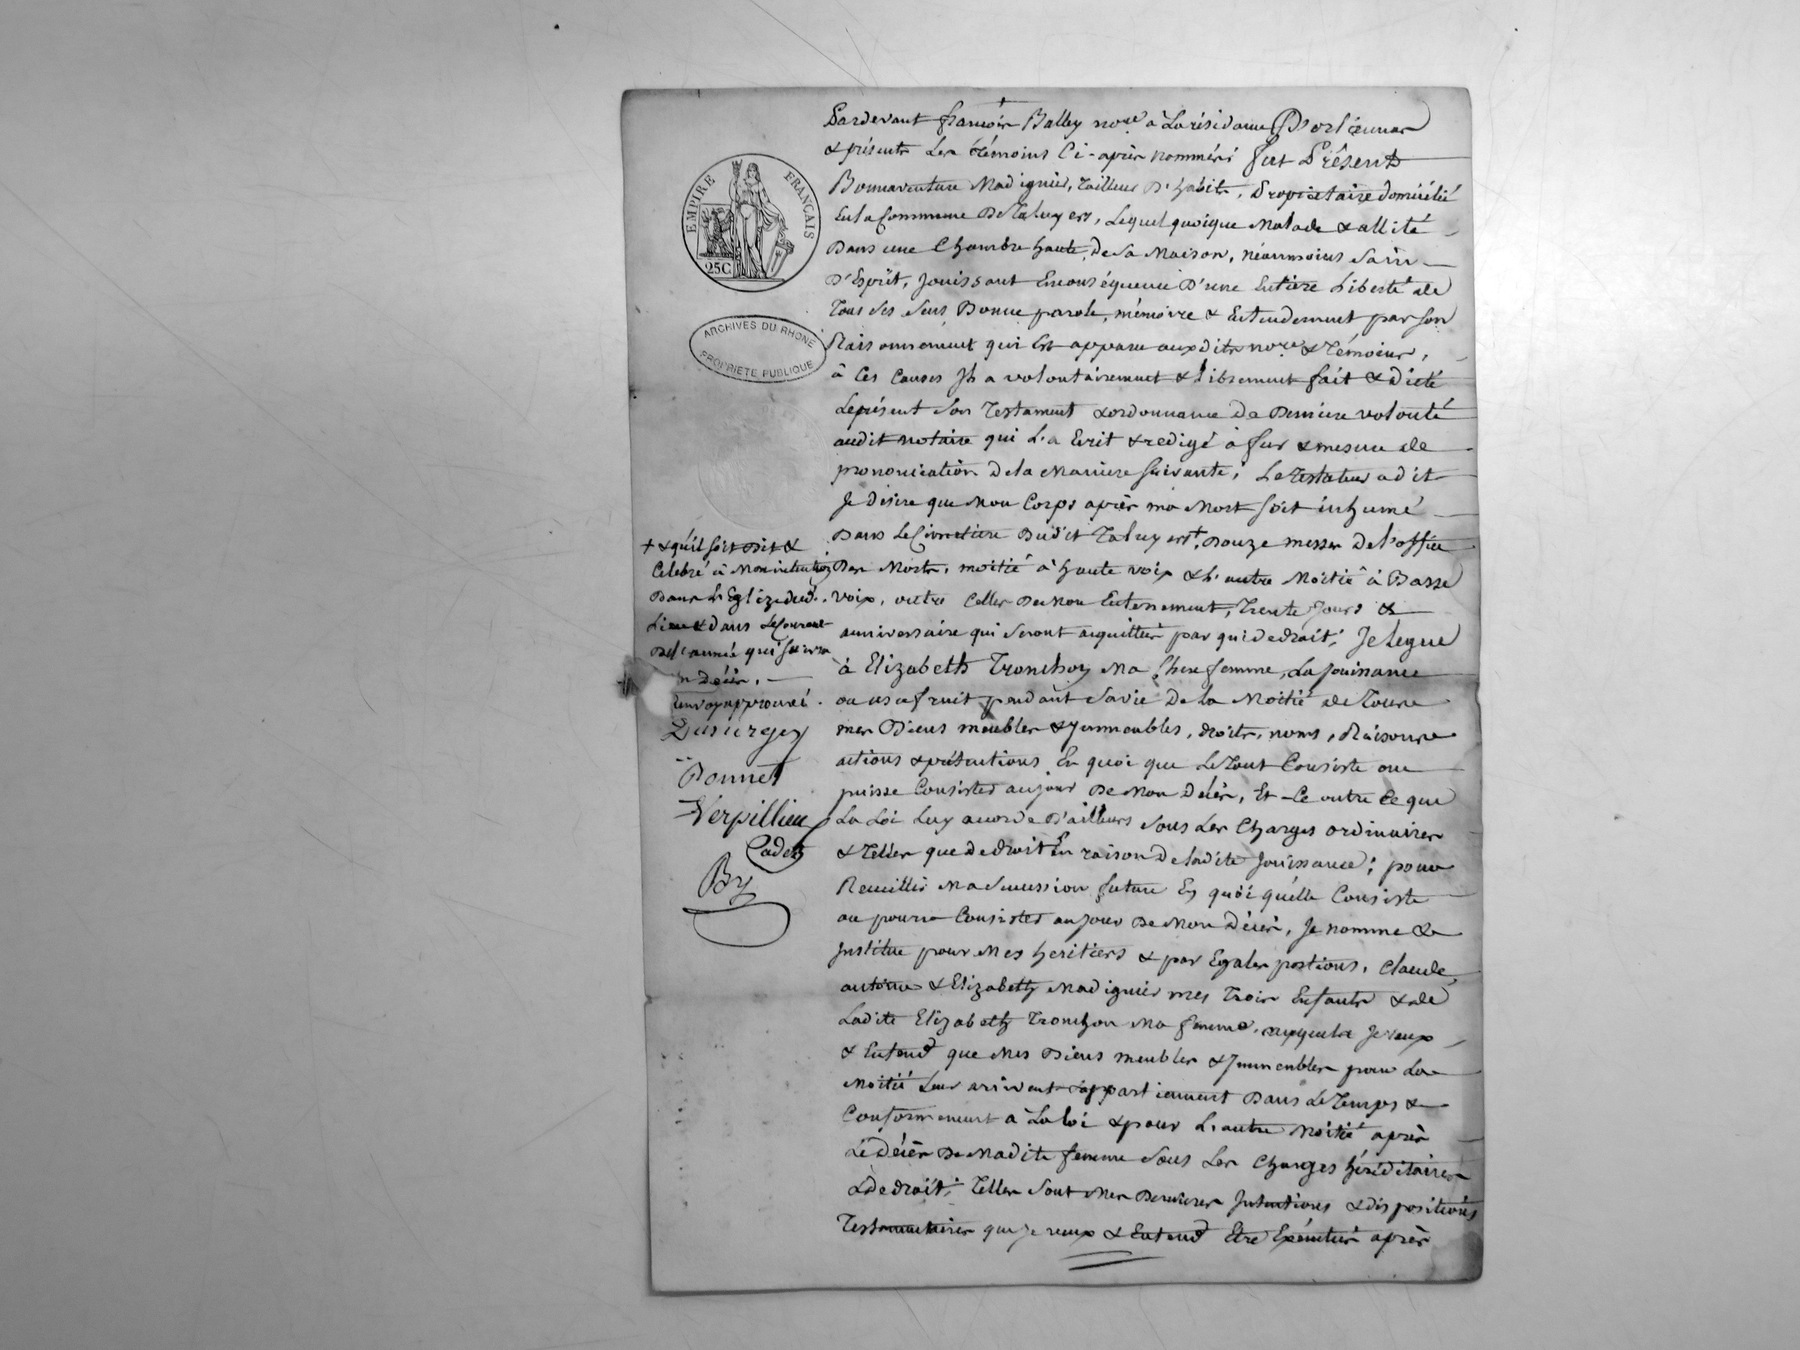 EMPIRE FRANÇAIS
25C
ARCHIVES DU RHONE
PROPRIETE PUBLIQUE
Pardevant françois Balley no.re à La résidance D'orliennas
& présents Les témoins Ci-après nommés fut Présent
Bonnaventure Madignier, tailleur D'habits, Propriétaire domicilié
En la Commune De Taluyers, Lequel quoique Malade & allité
Dans une Chambre haute, de Sa Maison, néanmoins Sain
D'Esprit, Jouissant En conséquence D'une Entière Liberté de
Tous Ses Sens Bonne parole, mémoire & Entendement par Son
Raisonnement qui Est apparu auxdits no.re & témoins,
à Ces Causes Il a volontairement & librement fait & dicté
Le présent Son Testament & ordonnance De Derniere volonté
audit notaire qui L'a Ecrit & redigé à fur & mesure de
prononciation De la Maniere Suivante; Le Testateur a dit
Je désire que Mon Corps après ma Mort Soit inhumé
Dans Le Cimetière Dudit Taluyers †, Douze messes De l'office
Des Morts, moitié à haute voix & L'autre Moitié à Basse
voix, outre Celles De Mon Enterrement, Trente Jours &
anniversaire qui Seront acquittés par qui de droit; Je Legue
à Elizabeth Tronchon Ma Chere femme, La Jouissance
ou usufruit pendant Sa vie De La Moitié de Tous
mes Biens meubles & Immeubles, droits, noms, Raisons
actions & prétentions En quoi que Le Tout Consiste ou
puisse Consister au jour De Mon Décès, Et Ce outre Ce que
La Loi Luy accorde D'ailleurs Sous Les Charges ordinaires
& Telles que de droit En raison De Ladite Jouissance; pour
Recueillir Ma Succession future En quoi qu'elle Consiste
ou pourra Consister au jour De Mon Décès, Je nomme &
Institue pour Mes heritiers & par Egales portions, Claude,
antoine & Elizabeth Madignier mes Trois Enfants & de
Ladite Elizabeth Tronchon Ma femme, auxquels Je veux
& Entend que Mes Biens meubles & Immeubles pour La
Moitié Leur arrivent & appartiennent Dans Le Temps &
Conformément à La loi & pour L'autre Moitié après
Le Décès De Madite femme Sous Les Charges héréditaires
& De droit; Telles Sont Mes Dernieres Intentions & dispositions
Testamentaires que je veux & Entend Etre Exécutées après
† & qu'il Soit Dit &
Celebré à Mon intention
Dans L'Eglize dud.
Lieu & Dans Le Courant
De L'année qui Suivra
Décès.
Renvoy approuvé.
Dusurgey
Bonnet
Verpillieu
Cadet
By